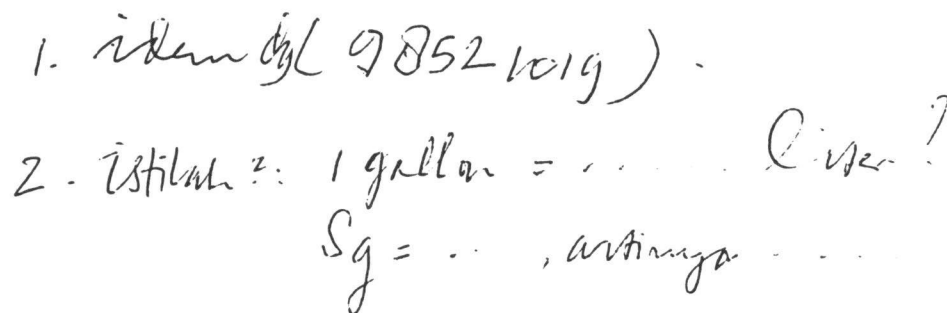 1. idem dg ( 98521019 ) .
2. istilah²: 1 gallon = ...... Liter?
Sg = ... , artinya .....